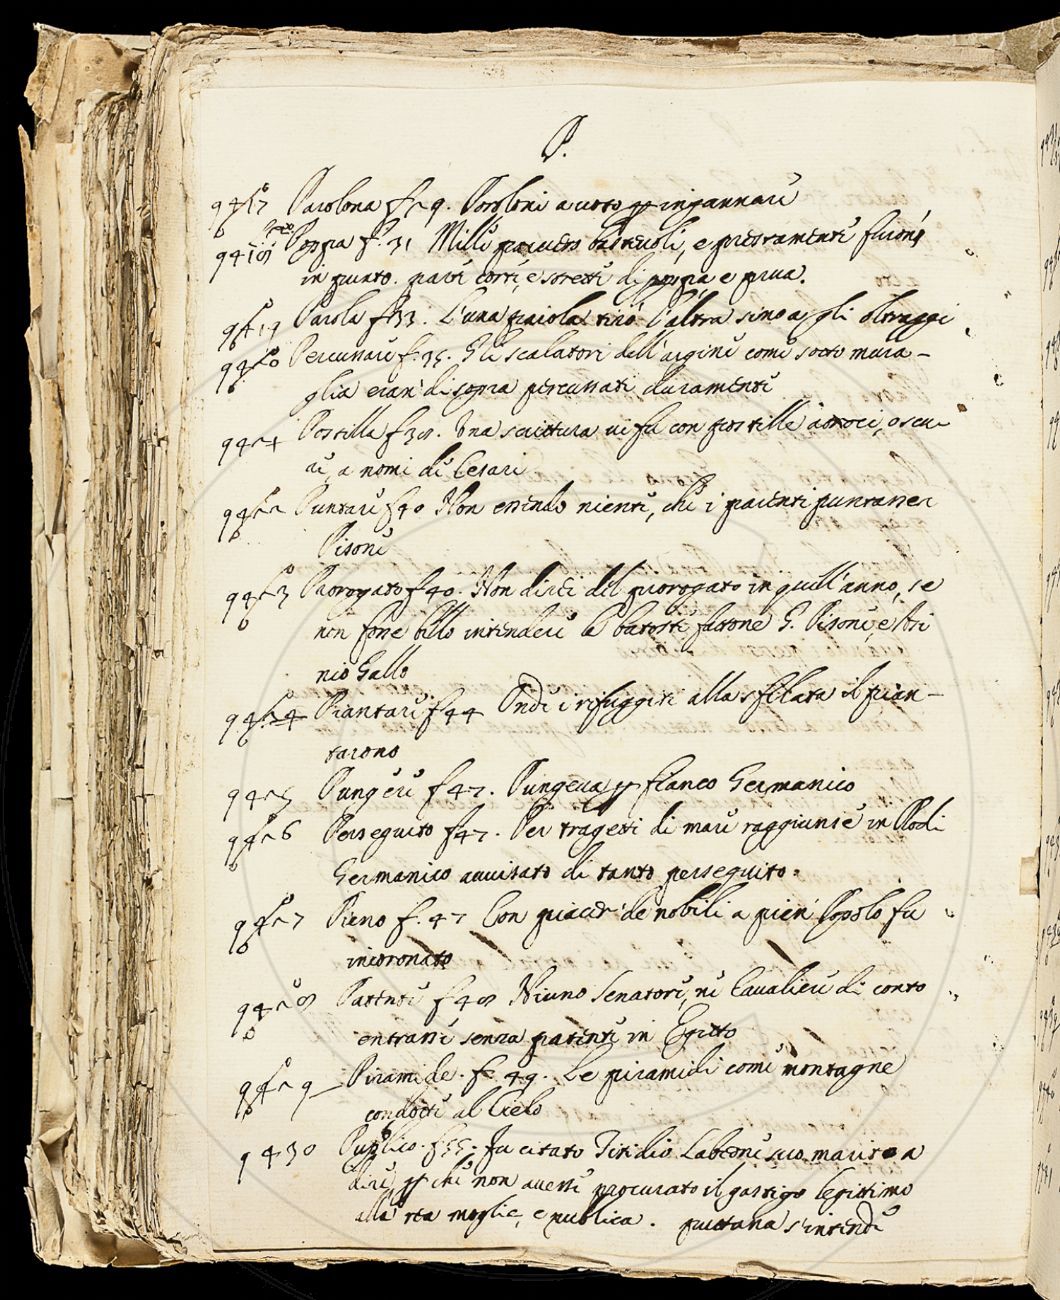 P.
9417 Parolona f 29. Paroloni a uoto p ingannare
9418 Poppa f. 31 Mille paruero bastevoli, e prestamente furono
in punto. parte corti, e stretti di poppa, e prua.
9419 Parola f 33. L'una parola tirò l'altra sino agli oltraggi
9420 Percussare f. 35. Gli scalatori dell'argine come sotto mura-
glia eran' di sopra percussati duramente
9421 Postilla f 38. Una scrittura ui fu con postille atroci, o scu-
re, a nomi di Cesari
9422 Puntare f 40 Non essendo niente, che i parenti puntasser
Pisone
9423 Prorogato f 40. Non direi del prorogato in quell'anno, se
non fosse bello intendere le batoste fattone G. Pisone, e Asi
nio Gallo
9424 Piantare f 44 Onde i rifuggiti alla sfilata il pian-
tarono
9425 Pungere f 47. Pungeua p fianco Germanico
9426 Perseguito f 47. Per tragetti di mare raggiunse in Rodi
Germanico auuisato di tanto perseguito.
9427 Pieno f. 47 Con piacer' de nobili a pien' Popolo fu
incoronato
9428 Patente f 48 Niuno Senatore, ne Caualiere di conto
entrasse senza patente in Egitto
9429 Piramide. f. 49. Le piramidi come montagne
condotte al Cielo
9430 Publico. f 55. Fu citato Titidio Labeone suo marito a
dire p che non auesse procurato il gastigo legittimo
alla rea moglie, e publica. puttana s'intende